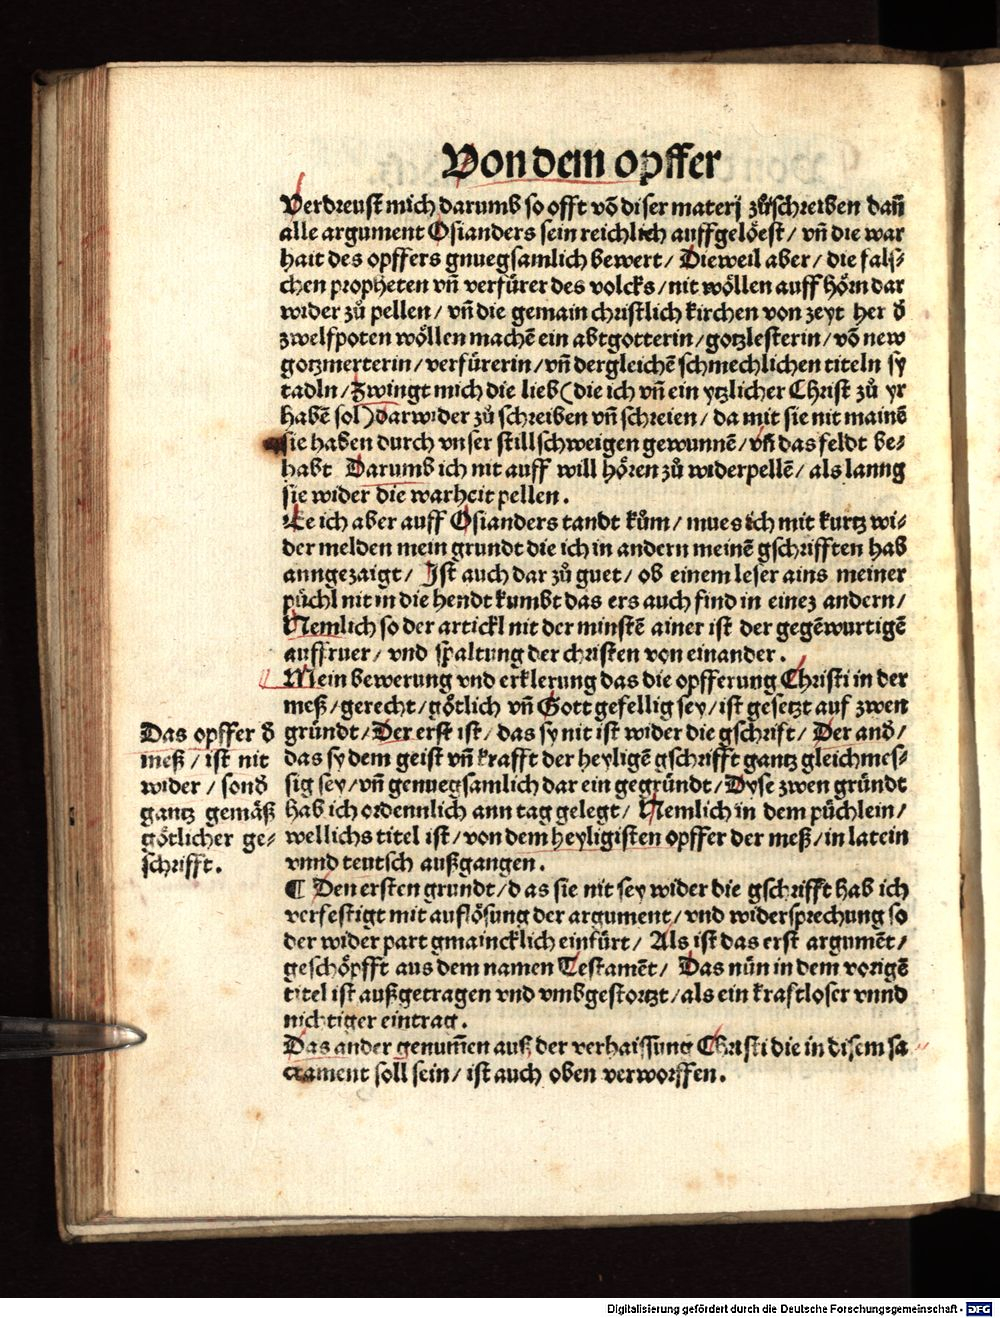 Von dem opffer
Verdreust mich darumb so offt võ diser materj zůschreiben dañ
alle argument Osianders sein reichlich auffgelöest / vñ die war
hait des opffers gnuegsamlich bewert / Dieweil aber / die fals⸗
chen propheten vñ verfürer des volcks / nit wöllen auff hörn dar
wider zů pellen / vñ die gemain christlich kirchen von zeyt her d̄
zwelfpoten wöllen machē ein abtgotterin / gotzlesterin / võ new
gotzmerterin / verfürerin / vñ dergleichē schmechlichen titeln sy
tadln / Zwingt mich die lieb (die ich vñ ein ytzlicher Christ zů yr
habē sol) darwider zů schreiben vñ schreien / da mit sie nit mainē
sie haben durch vnser stillschweigen gewunnē / vñ das feldt be⸗
habt Darumb ich nit auff will hören zů widerpellē / als lanng
sie wider die warheit pellen .
Ee ich aber auff Osianders tandt kům / mues ich mit kurtz wi⸗
der melden mein grundt die ich in andern meinē gschrifften hab
anngezaigt / Ist auch dar zů guet / ob einem leser ains meiner
püchl nit in die hendt kumbt das ers auch find in einez andern /
Nemlich so der artickl nit der minstē ainer ist der gegēwurtigē
auffruer / vnd spaltung der christen von einander .
Mein bewerung vnd erklerung das die opfferung Christi in der
meß / gerecht / götlich vñ Gott gefellig sey / ist gesetzt auf zwen
gründt / Der erst ist / das sy nit ist wider die gschrift / Der and̄ /
das sy dem geist vñ krafft der heyligē gschrifft gantz gleichmes⸗
sig sey / vñ genuegsamlich dar ein gegründt / Dyse zwen gründt
hab ich ordennlich ann tag gelegt / Nemlich in dem püchlein /
wellichs titel ist / von dem heyligisten opffer der meß / in latein
vnnd teutsch außgangen .
¶ Den ersten grundt / das sie nit sey wider die gschrifft hab ich
verfestigt mit auflösung der argument / vnd widersprechung so
der wider part gmaincklich einfürt / Als ist das erst argumēt /
geschöpfft aus dem namen Testamēt / Das nůn in dem vorigē
titel ist außgetragen vnd vmbgestortzt / als ein kraftloser vnnd
nichtiger eintrag .
Das ander genum̃en auß der verhaissung Christi die in disem sa
crament soll sein / ist auch oben verworffen .
Das opffer d̄
meß / ist nit
wider / sond̄
gantz gemäß
götlicher ge⸗
schrifft .
Digitalisierung gefördert durch die Deutsche Forschungsgemeinschaft - DFG